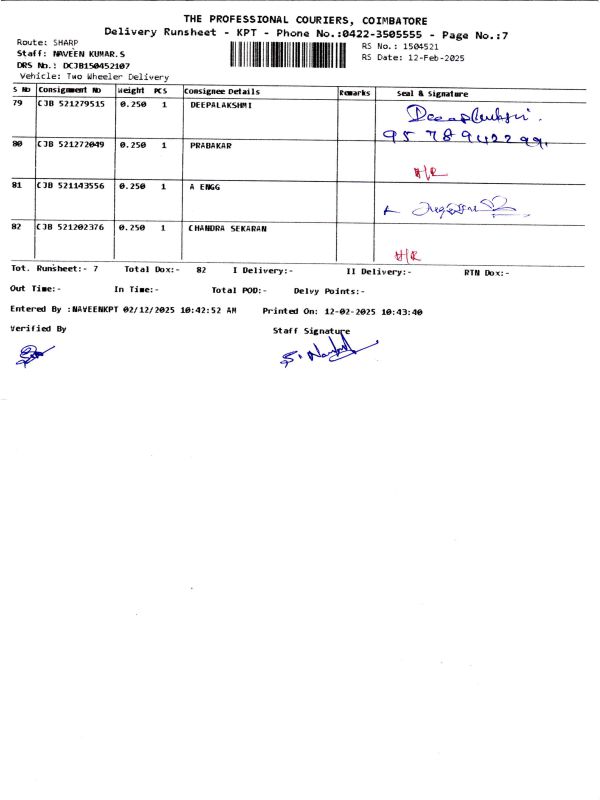 THE PROFESSIONAL COURIERS, COIMBATORE
Delivery Runsheet - KPT - Phone No.:0422-3505555 - Page No.:7
Route: SHARP
RS No.: 1504521
Staff: NAVEEN KUMAR.S
RS Date: 12-Feb-2025
DRS No.: DCJB150452107
Vehicle: Two Wheeler Delivery
S No Consignment No Weight PCS Consignee Details Remarks Seal & Signature
79 CJB 521279515 0.250 1 DEEPALAKSHMI
9578942299
80 CJB 521272049 0.250 1 PRABAKAR
H/R
81 CJB 521143556 0.250 1 A ENGG
82 CJB 521202376 0.250 1 CHANDRA SEKARAN
H/R
Tot. Runsheet:- 7 Total Dox:- 82 I Delivery:- II Delivery:- RTN Dox:-
Out Time:- In Time:- Total POD:- Delvy Points:-
Entered By :NAVEENKPT 02/12/2025 10:42:52 AM Printed On: 12-02-2025 10:43:40
Verified By Staff Signature